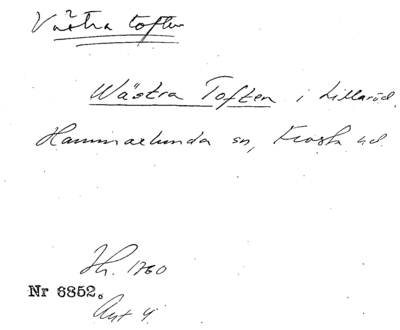 Västra toften
Wästra Toften i Lillaröd,
Hammarlunda sn, Frosta hd.
Jh. 1760
Nr 6852.
Akt 4.